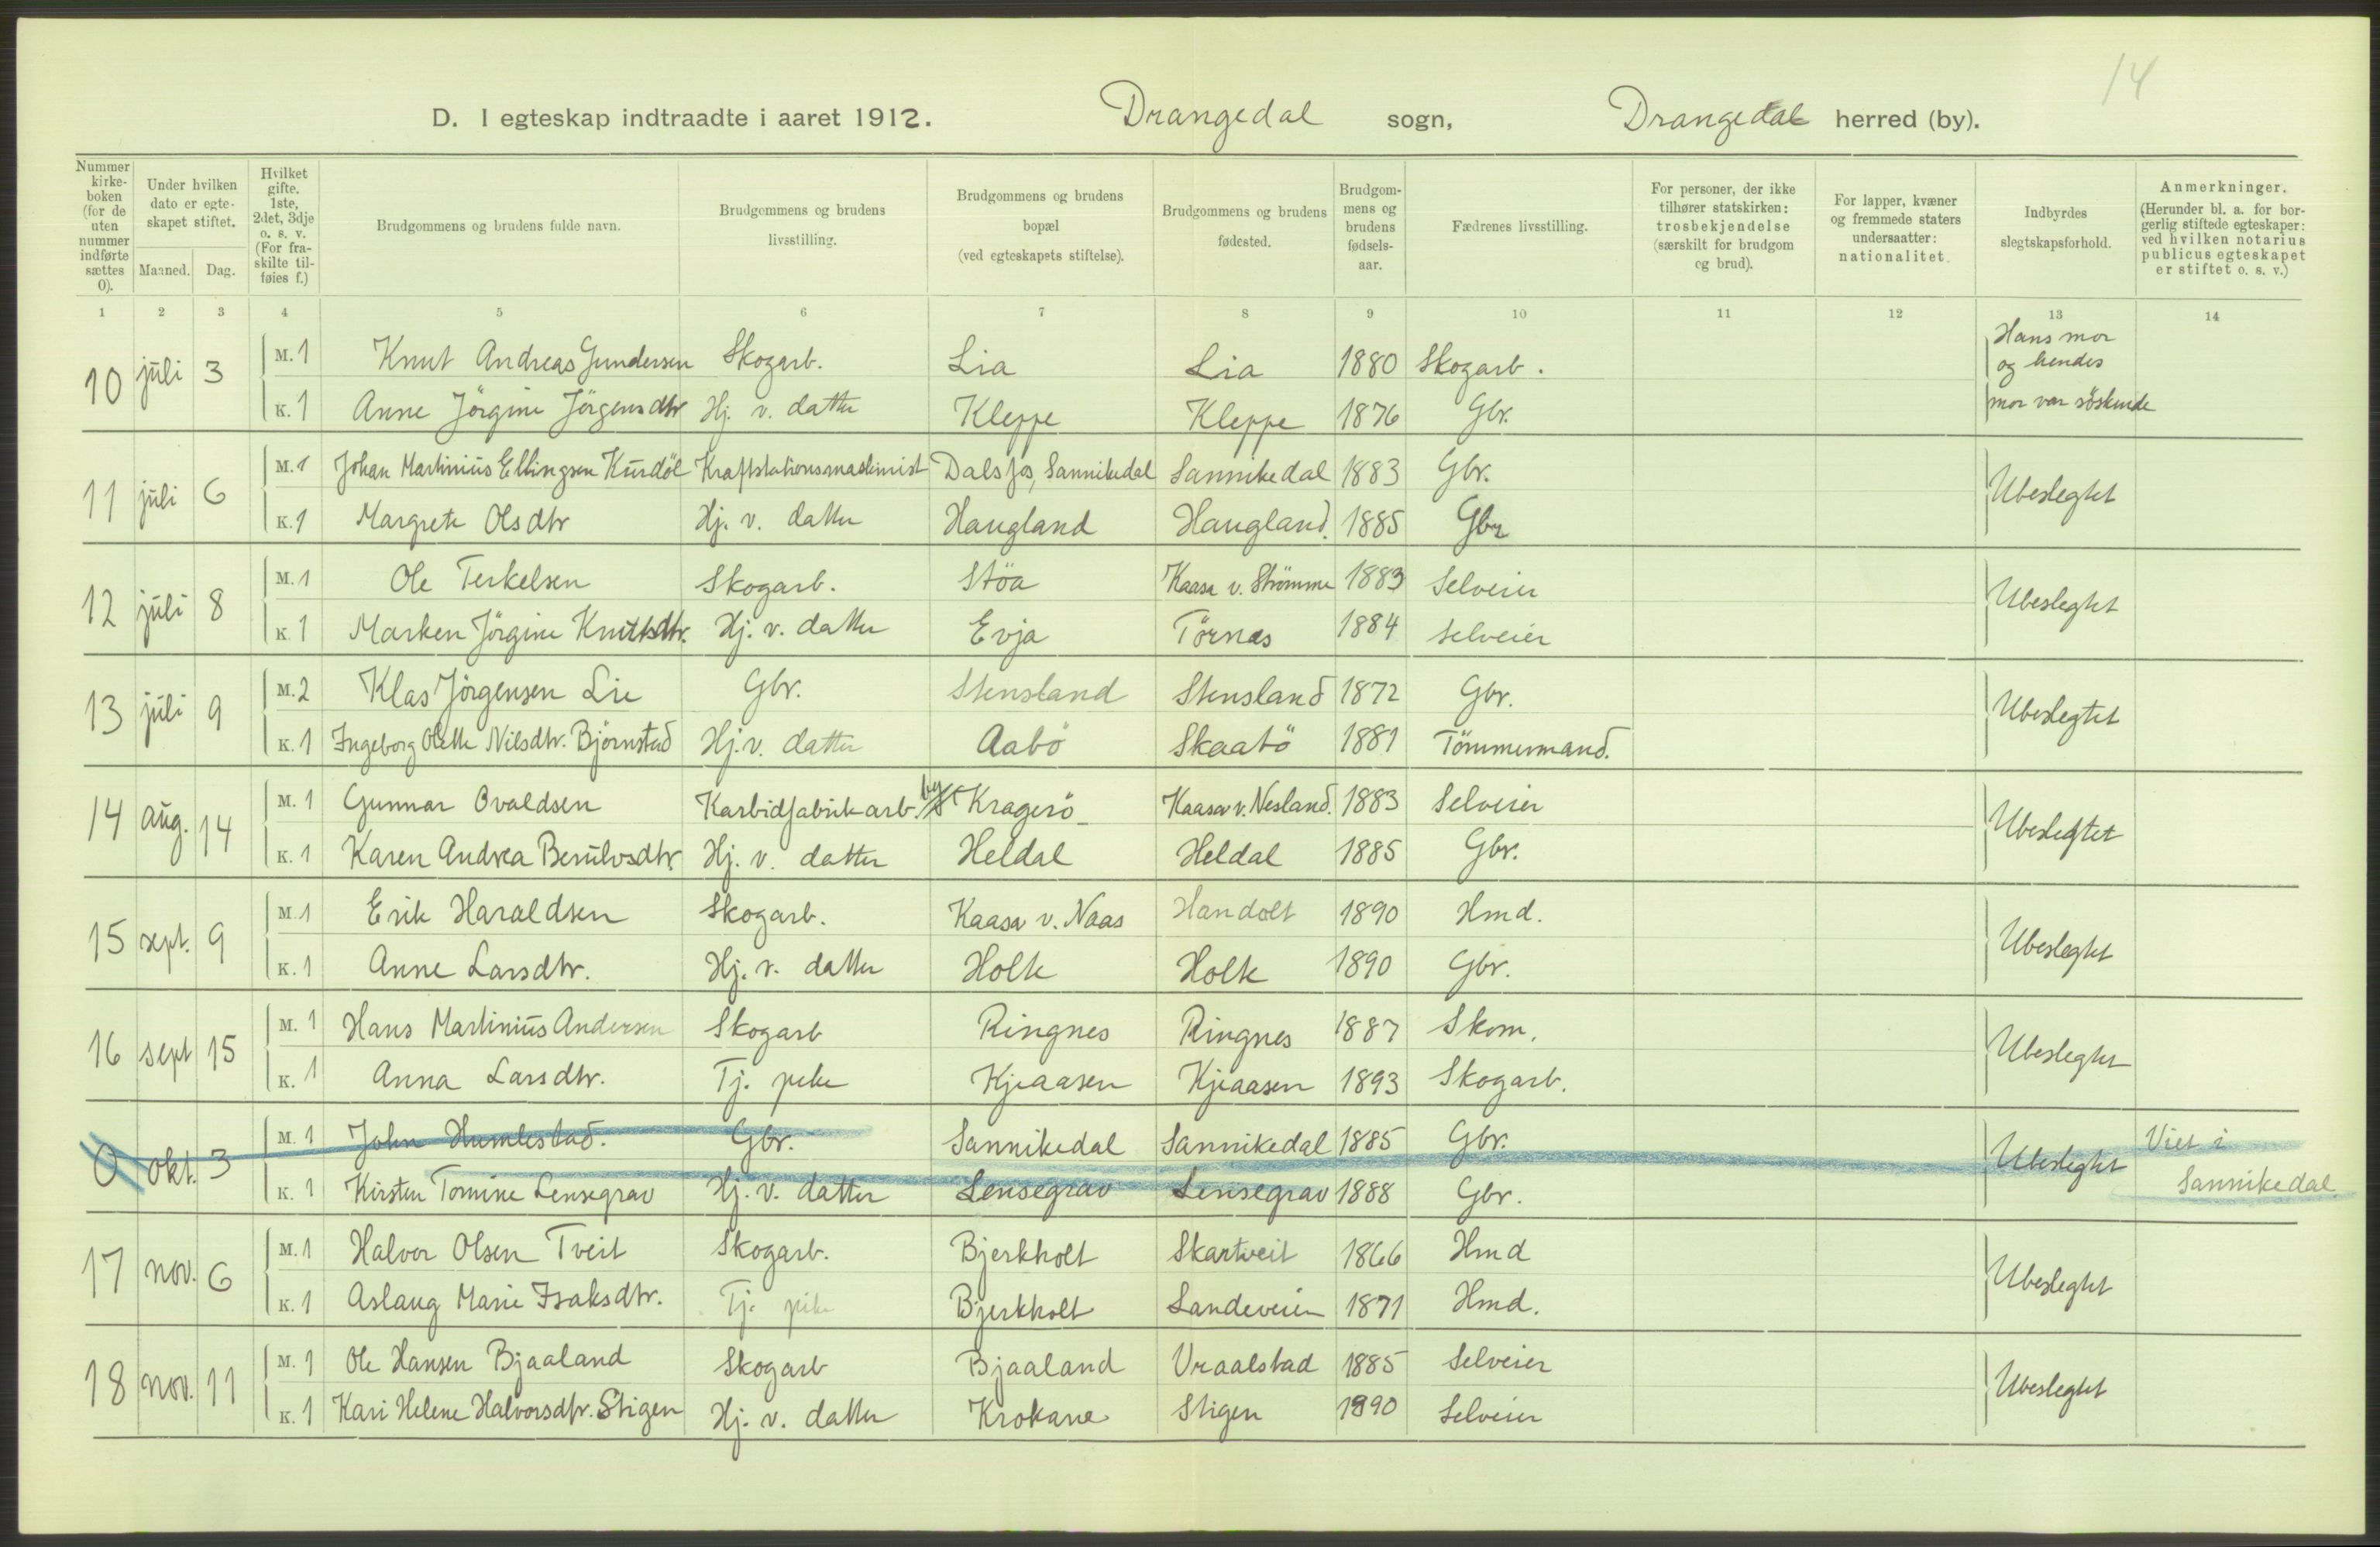 14
D. I egteskap indtraadte i aaret 1912. Drangedal sogn, Drangedal herred (by).
Nummer kirke-boken (for de uten nummer indførte sættes 0). Under hvilken dato er egte-skapet stiftet. Maaned. Dag. Hvilket gifte. 1ste, 2det, 3dje o. s. v. (For fra-skilte til-føies f.) Brudgommens og brudens fulde navn. Brudgommens og brudens livsstilling. Brudgommens og brudens bopæl (ved egteskapets stiftelse). Brudgommens og brudens fødested. Brudgom-mens og brudens fødsels-aar. Fædrenes livsstilling. For personer, der ikke tilhører statskirken: trosbekjendelse (særskilt for brudgom og brud). For lapper, kvæner og fremmede staters undersaatter: nationalitet. Indbyrdes slegtskapsforhold. Anmerkninger. (Herunder bl. a. for bor-gerlig stiftede egteskaper: ved hvilken notarius publicus egteskapet er stiftet o. s. v.)
1 2 3 4 5 6 7 8 9 10 11 12 13 14
10 juli 3 M. 1 Knut Andreas Gundersen Skogarb. Lia Lia 1880 Skogarb. Hans mor og hendes mor var söskende
K. 1 Anne Jörgine Jörgensdtr Hj. v. datter Kleppe Kleppe 1876 Gbr.
11 juli 6 M. 1 Johan Martinius Ellingsen Kurdöl Kraftstationsmaskinist Dalsfos, Sannikedal Sannikedal 1883 Gbr. Ubeslegtet
K. 1 Margrete Olsdtr Hj. v. datter Haugland Haugland. 1885 Gbr
12 juli 8 M. 1 Ole Terkelsen Skogarb. Stöa Kaasa v. Strömme 1883 Selveier Ubeslegtet
K. 1 Marken Jörgine Knutsdtr. Hj. v. datter Evja Törnes 1884 Selveier
13 juli 9 M. 2 Klas Jörgensen Lie Gbr. Stensland Stensland 1872 Gbr. Ubeslegtet
K. 1 Ingeborg Olette Nilsdtr. Björnstad Hj. v. datter Aabö Skaatö 1881 Tömmermand.
14 aug. 14 M. 1 Gunnar Ovaldsen Karbidfabrikarb. by Kragerö Kaasa v. Nesland. 1883 Selveier Ubeslegtet
K. 1 Karen Andrea Berulvsdtr. Hj. v. datter Heldal Heldal 1885 Gbr.
15 sept. 9 M. 1 Erik Haraldsen Skogarb. Kaasa v. Naas Handolt 1890 Hmd. Ubeslegtet
K. 1 Anne Larsdtr. Hj. v. datter Holte Holte 1890 Gbr.
16 sept 15 M. 1 Hans Martinius Andersen Skogarb Ringnes Ringnes 1887 Skom. Ubeslegtet
K. 1 Anna Larsdtr. Tj. pike Kjeaasen Kjeaasen 1893 Skogarb.
0 okt. 3 M. 1 John Humlestad. Gbr. Sannikedal Sannikedal 1885 Gbr. Ubeslegtet Viet i Sannikedal
K. 1 Kirsten Tomine Lensegrav Hj. v. datter Lensegrav Lensegrav 1888 Gbr.
17 nov. 6 M. 1 Halvor Olsen Tveit Skogarb. Bjerkholt Skartveit 1866 Hmd Ubeslegtet
K. 1 Aslaug Marie Isaksdtr. Tj. pike Bjerkholt Landeveien 1871 Hmd.
18 nov. 11 M. 1 Ole Hansen Bjaaland Skogarb Bjaaland Vraalstad 1885 Selveier Ubeslegtet
K. 1 Kari Helene Halvorsdtr. Stigen Hj. v. datter Krokane Stigen 1890 Selveier